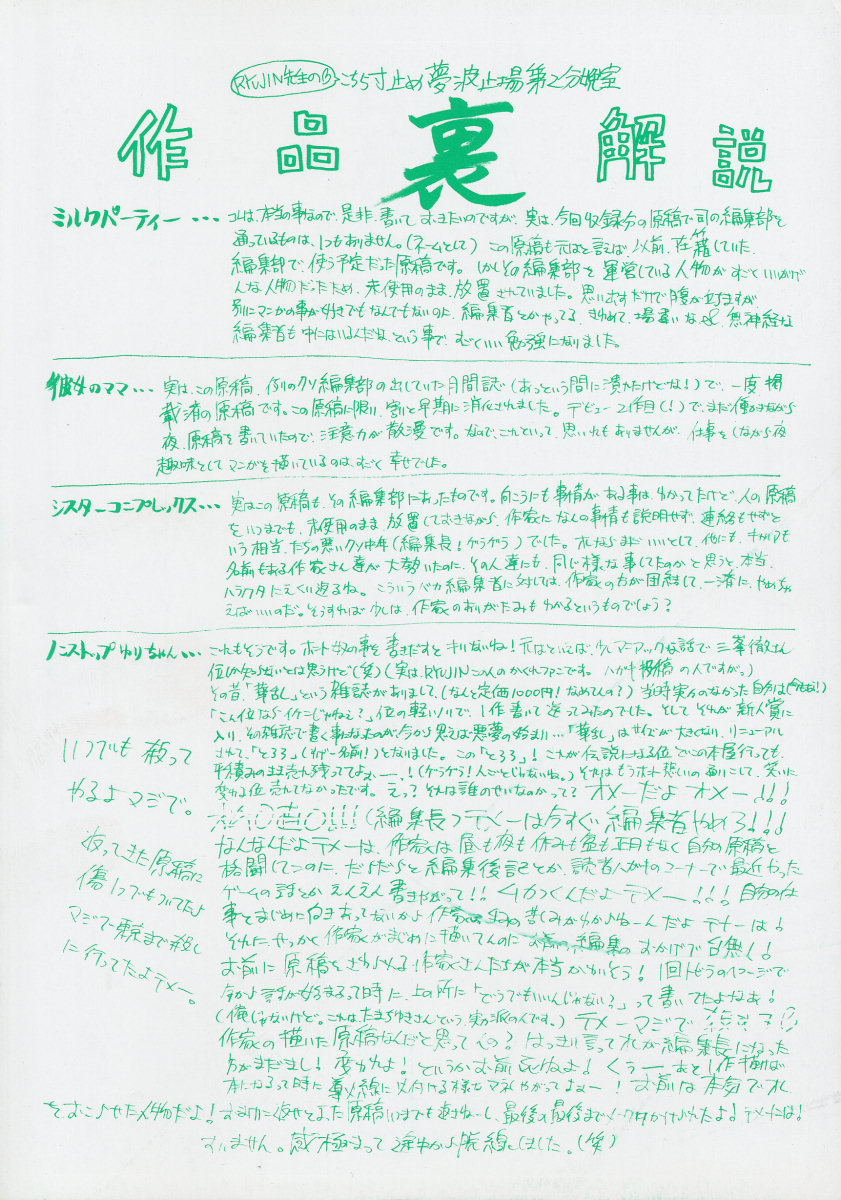 RYUJIN先生の こちら寸止め夢波止場第2分娩室
作品裏解説
ミルクパーティー・・・ コレは、本当の事なので、是非、書いておきたいのですが、実は、今回収録分の原稿で司の編集部を
通っているものは、1つもありません。(ネームとして) この原稿も元はと言えば、以前、在籍していた
編集部で、使う予定だった原稿です。しかしその編集部を運営している人物がすごくいいかげ
んな人物だったため、未使用のまま、放置されていました。思い出すだけで腹が立ちますが
別にマンガの事が好きでもなんでもないのに、編集者とかやってる、きわめて、場違いな、&、無神経な
編集者も中にはいるんだな、という事で、すごくいい勉強になりました。
彼女のママ・・・ 実は、この原稿、例のクソ編集部の出していた月間誌(あっという間に潰れたけどな!)で、一度掲
載済の原稿です。この原稿に限り、割と早期に消化されました。デビュー2作目(!)で、まだ働きながら
夜、原稿を書いていたので、注意力が散漫です。なので、これといって、思い入れもありませんが、仕事をしながら夜
趣味としてマンガを描いているのは、すごく幸せでした。
シスターコンプレックス・・・ 実はこの原稿も、その編集部にあったものです。向こうにも事情がある事は、わかってたけど、人の原稿
をいつまでも、未使用のまま放置しておきながら、作家になんの事情も説明せず、連絡もせずと
いう相当、たちの悪いクソ中年(編集長!ゲラゲラ)でした。オレならまだいいとして、他にも、キャリアも
名前もある作家さん達が大勢いたのに、その人達にも、同じ様な事してたのかと思うと、本当、
ハラワタにえくり返るね。こういうバカ編集者に対しては、作家の方が団結して、一斉に、やめちゃ
えばいいのだ。そうすれば少しは、作家のありがたみもわかるというものでしょう?
ノンストップゆりちゃん・・・ これもそうです。ホント奴の事を書きだすとキリないね!元はといえば、少しマニアックな話で三峯徹さん
位しか知らないとは思うけど(笑)(実は、RYUJINこの人のかくれファンです。ハガキ投稿の人ですが。)
その昔「華乱」という雑誌がありまして、(なんと定価1000円!なめてんの?)当時実力のなかった自分は(今もだ!)
「こん位ならイケンじゃねえ?」位の軽いノリで、1作書いて送ってみたのでした。そしてそれが新人賞に
入り、その雑誌で書く事になったのが今から思えば悪夢の始まり・・・「華乱」はサイズが大きくなり、リニューアル
されて、「とろろ」(すげー名前!)となりました。この「とろろ」!これが伝説になる位どこの本屋行っても、
平積みのまま売れ残っててよぉー、!(ゲラゲラ!人ごとじゃないね。)それはもうホント想いの通りにして、笑いに
変わる位売れてなかったです。えっ?それは誰のせいなのかって? オメーだよオメー!!!
!!!(編集長)テメーは今すぐ編集者やめろ!!!
なんなんだよテメーは、作家は昼も夜も休みも盆も正月もなく自分の原稿と
格闘してンのに、だらだらと編集後記とか、読者ハガキのコーナーで最近やった
ゲームの話とかえんえん書きやがって!!ムカつくんだよテメー!!!自分の仕
事とまじめに向きあってないから作家の苦しみがわかんねーんだよテメーは!
それに、せっかく作家がまじめに描いてんのにお前の編集のおかげで台無し!
お前に原稿をさわられる作家さんたちが本当かわいそう!1回トビラのページで
今から話が始まるって時に、上の所に「どうでもいいんじゃない?」って書いてたよなぁ!
(俺じゃないけど。これはたまちゆきさんという実力派の人です。)テメーマジで
作家の描いた原稿なんだと思ってンの?はっきり言ってオレが編集長になった
方がまだまし!変われよ!というかお前死ねよ!くぅーーあと1作描けば
本になるって時に 以向ける様なマネしやがってよぉー!お前は本気でオレ
をおこらせた人物だよ!おまけに返せと言った原稿いつまでも返さねーし、最後の最後までメーワクかけられたよ!テメーには!
すいません。感極まって途中から脱線しました。(笑)
いつでも殺って
やるよマジで。
返ってきた原稿に
傷1つでもついてたら
マジで東京まで殺し
に行ってたよテメー。